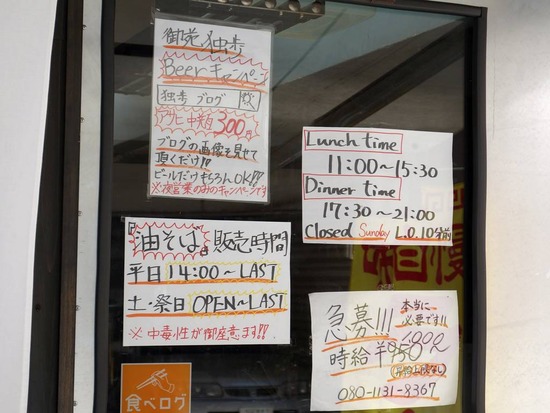 御苑 独歩
Beerキャンペーン
独歩 ブログ
アサヒ 中ジョッキ 300円
ブログの画像を見せて
頂くだけ!!
ビールだけもちろんOK!!!
※夜営業のみのキャンペーンです
Lunch time
11:00~15:30
Dinner time
17:30~21:00
Closed Sunday L.O.10分前
油そば 販売時間
平日 14:00~LAST
土・祭日 OPEN~LAST
※ 中毒性が御座意ます!!
急募!!!
本当に
必要です!!
時給 ¥950
1000
080-1131-8367
食べログ